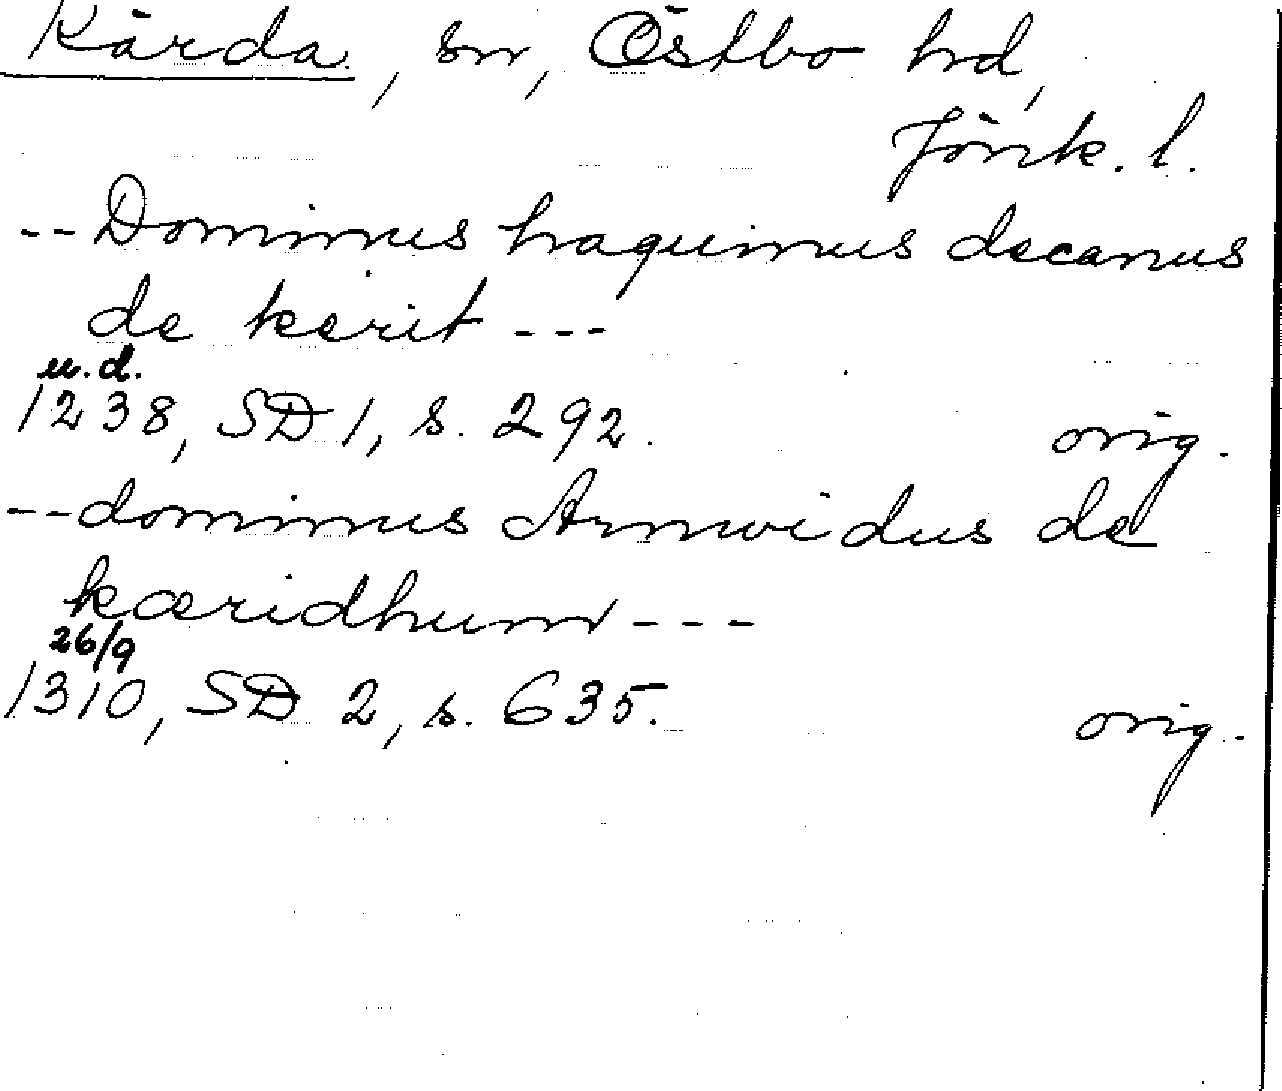 Kärda, sn, Östbo hd,
Jönk. l.
-- Dominus haquinus decanus
de kerit ---
u.d.
1238, SD 1, s. 292. orig.
-- dominus Arnuidus de
kæridhum ---
26/9
1310, SD 2, s. 635. orig.